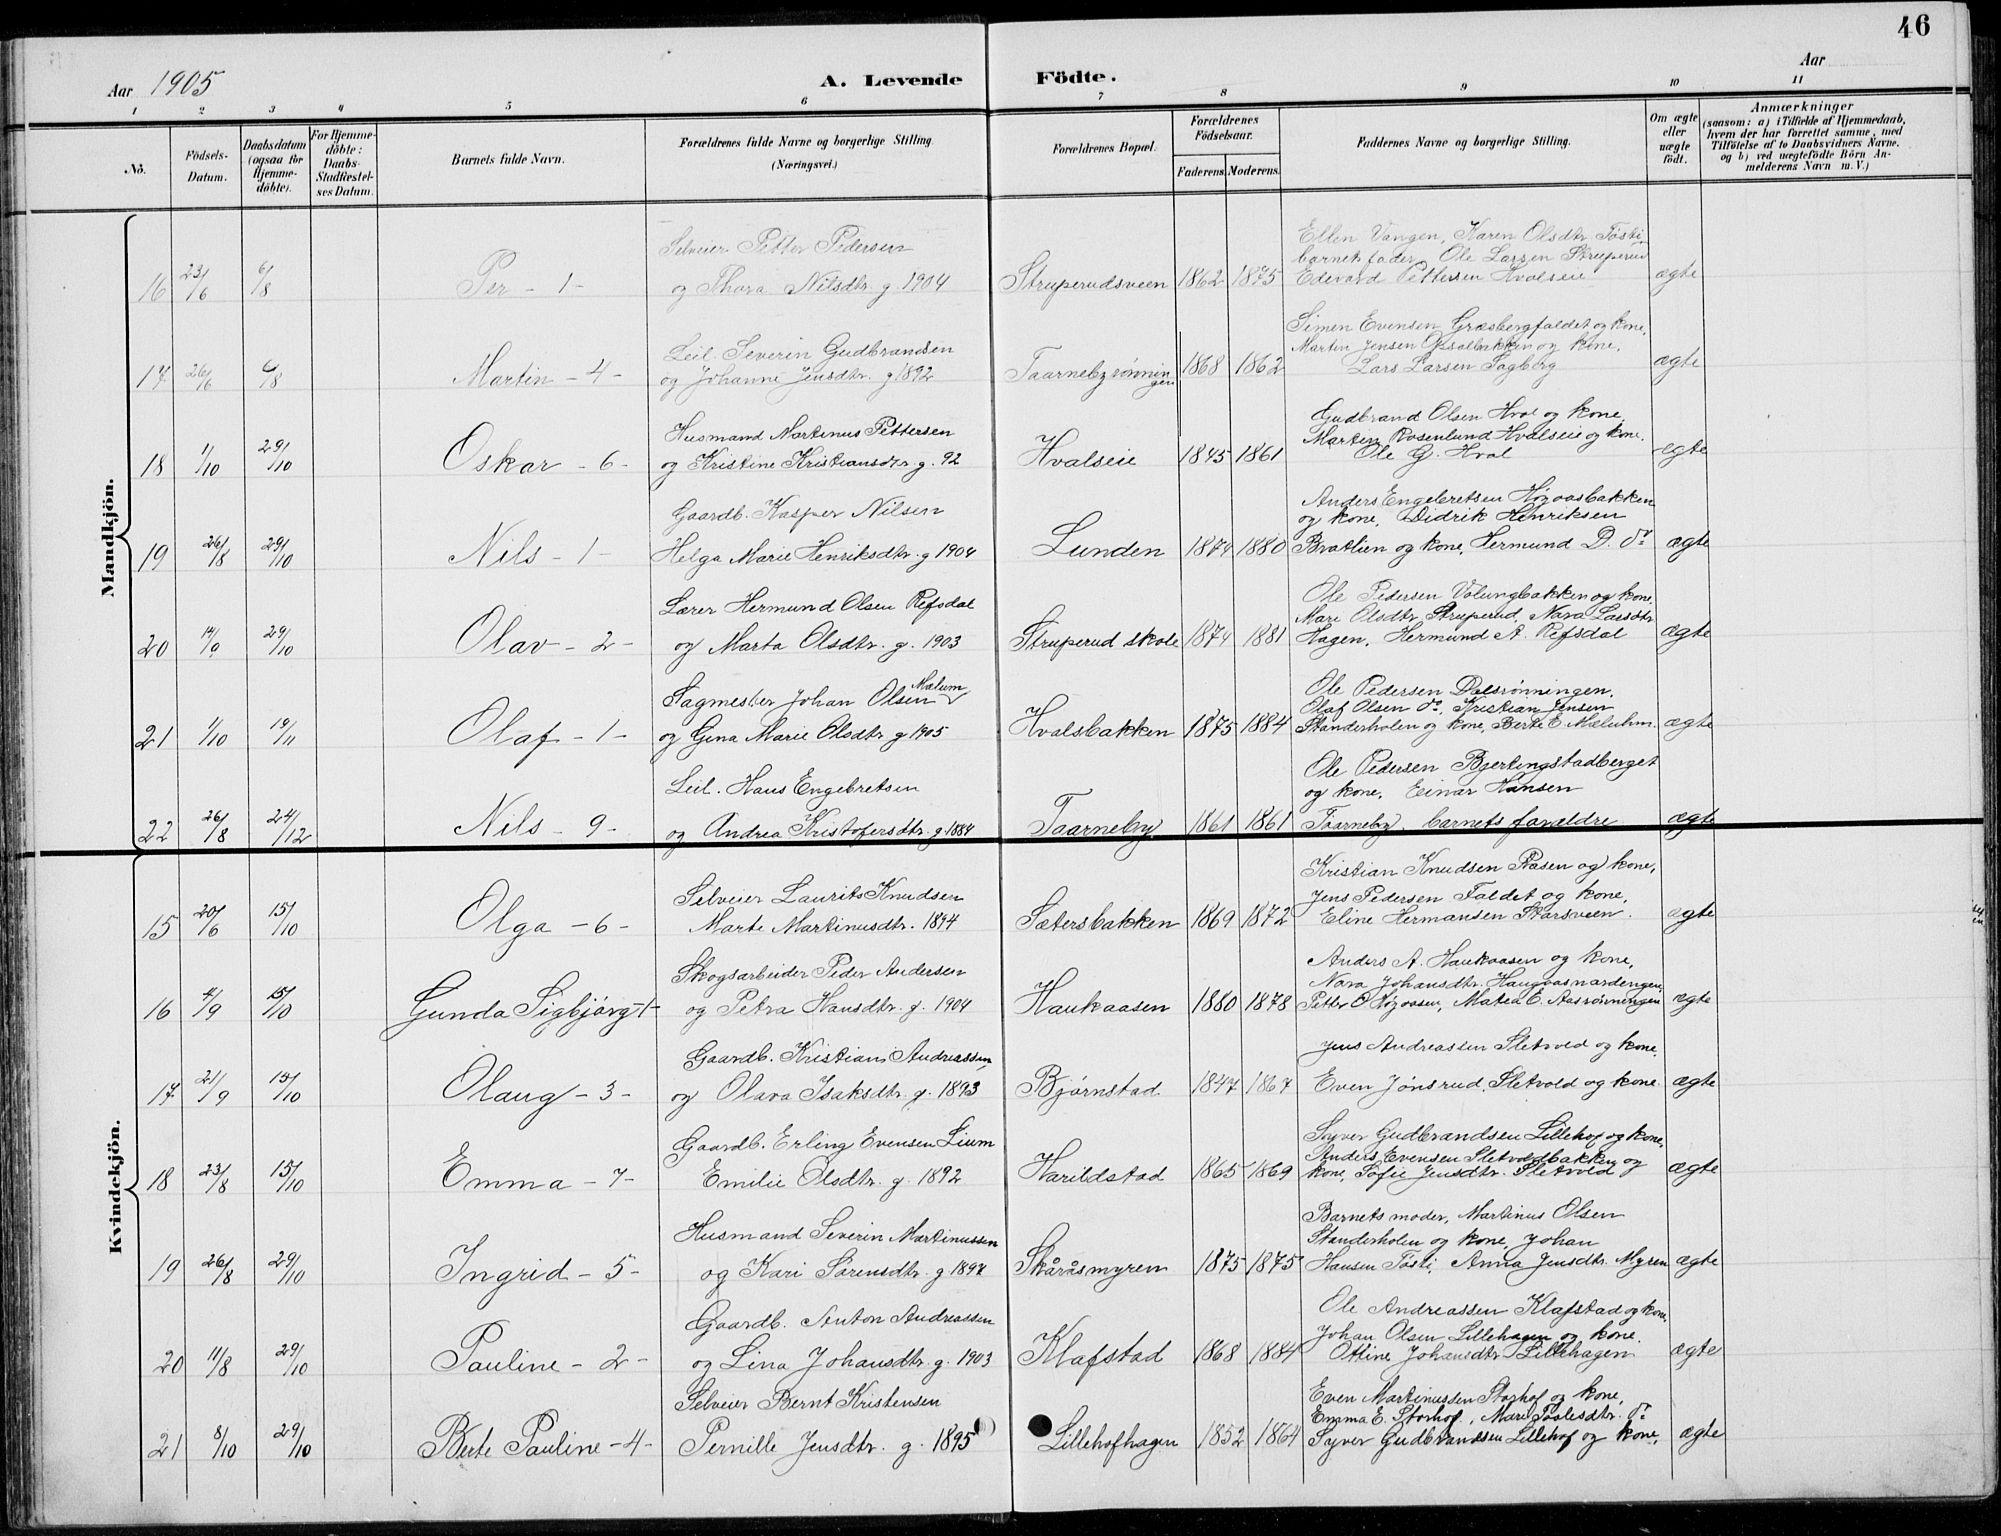 46
Aar 1905
A. Levende Födte.
Aar
1 2 3 4 5 6 7 8 9 10 11
No.
Födsels-Datum.
Daabsdatum (ogsaa for Hjemme-döbte).
For Hjemme-döbte: Daabs-Stadfæstel-ses Datum.
Barnets fulde Navn.
Forældrenes fulde Navne og borgerlige Stilling (Næringsvei.)
Forældrenes Bopæl.
Forældrenes Födselsaar.
Faderens. Moderens.
Faddernes Navne og borgerlige Stilling.
Om ægte eller uægte födt.
Anmærkninger
(saasom: a) i Tilfælde af Hjemmedaab, hvem der har forrettet samme, med Tilföielse af to Daabsvidners Navne. og b) ved uægtefödte Börn An-melderens Navn m. V.)
Mandkjön.
Selveier Petter Pedersen
Ellen Vangen, Karen Olsdtr. Tøsti,
barnets fader, Ole Larsen Struperud
16 23/6 6/8 Per - 1 - og Thora Nilsdtr. g. 1904 Struperudsveen 1862 1875 Edevard Pettersen Hvalseie ægte
Simen Evensen Græsbergfaldet og kone,
Leil. Severin Gudbrandsen
Martin Jensen og kone,
17 26/6 6/8 Martin - 4 - og Johanne Jensdtr. g 1892 Taarnebyrønningen 1868 1862 Lars Larsen Fagberg ægte
Gudbrand Olsen Hval og kone,
Husmand Martinus Pettersen
Martin Rosenlund Hvalseie og kone,
18 1/10 29/10 Oskar - 6 - og Kristine Kristiansdtr. g. 92 Hvalseie 1845 1861 Ole G. Hval ægte
Anders Engebretsen Høgaasbakken
Gaardb. Kasper Nilsen
og kone, Didrik Henriksen
19 26/8 29/10 Nils - 1 - Helga Marie Henriksdtr. g 1904 Lunden 1874 1880 Bratlien og kone, Hermund D. do ægte
Ole Pedersen Volungbakken og kone,
Lærer Hermund Olsen Refsdal
Mari Olsdtr. Struperud, Nara Larsdtr.
20 14/9 29/10 Olav - 2 - og Marta Olsdtr. g. 1903 Struperud skole 1874 1881 Hagen, Hermund A. Refsdal ægte
Ole Pedersen Dalsrønningen,
Sagmester Johan Olsen Mælum
Olaf Olsen do, Kristian Jensen
21 1/10 19/11 Olaf - 1 - og Gina Marie Olsdtr. g 1905 Hvalsbakken 1875 1884 Standerholen og kone, Berte E. Mæluhm. ægte
Ole Pedersen Bjertingstadberget
Leil. Hans Engebretsen
og kone, Einar Hansen
22 26/8 24/12 Nils - 9 - og Andrea Kristofersdtr. g. 1884 Taarneby 1861 1861 Taarneby, barnets forældre ægte
Kvindekjön.
Kristian Knudsen Aasen og kone,
Selveier Laurits Knudsen
Jens Pedersen Faldet og kone,
15 20/6 15/10 Olga - 6 - Marte Martinusdtr. 1894 Sætersbakken 1869 1872 Eline Hermansen Skarsveen. ægte
Anders A. Haukaasen og kone,
Skogsarbeider Peder Andersen
Nara Johansdtr.
16 4/9 15/10 Gunda Sigbjørg - 1 - og Petra Hansdtr. g. 1904 Haukaasen 1880 1878 Petter O. Høgaasen, Matea E. Aasrønningen ægte
Gaardb. Kristian Andreassen
Jens Andreassen Sletvold og kone,
17 21/9 15/10 Olaug - 3 - og Olava Isaksdtr. g. 1893 Bjørnstad 1847 1867 Even Jønsrud Sletvold og kone ægte
Syver Gudbrandsen Lillehof og kone,
Gaardb. Erling Evensen Lium
Anders Evensen Sletvoldbakken og
18 23/8 15/10 Emma - 7 - Emilie Olsdtr. g. 1892 Harildstad 1865 1869 kone, Sofie Jensdtr. Sletvold ægte
Barnets moder, Martinus Olsen
Husmand Severin Martinussen
Standerholen og kone, Johan
19 26/8 29/10 Ingrid - 5 - og Kari Sørensdtr. g 1897 Skåråsmyren 1875 1875 Hansen Tøsti, Anna Jensdtr. Myren ægte
Ole Andreassen Klafstad og kone,
Gaardb. Anton Andreassen
Johan Olsen Lillehagen og kone.
20 11/8 29/10 Pauline - 2 - og Lina Johansdtr. g. 1903 Klafstad 1868 1884 Otline Johansdtr. Lillehagen ægte
Even Martinussen Storhof og kone,
Selveier Bernt Kristensen
Emma E. Storhof, Mari Paalesdtr. do
21 8/10 29/10 Berte Pauline - 4 - Pernille Jensdtr. g. 1895 Lillehofhagen 1852 1864 Syver Gudbrandsen Lillehof og kone, ægte